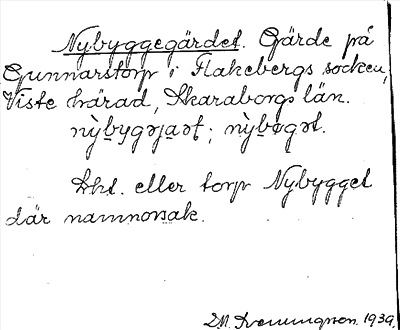 Nybyggegärdet. Gärde på
Gunnarstorp i Flakebergs socken,
Viste härad, Skaraborgs län.
nỳbygəjaət; nỳbøgət.
Lht. eller torp Nybygget
där namnorsak.
1939.